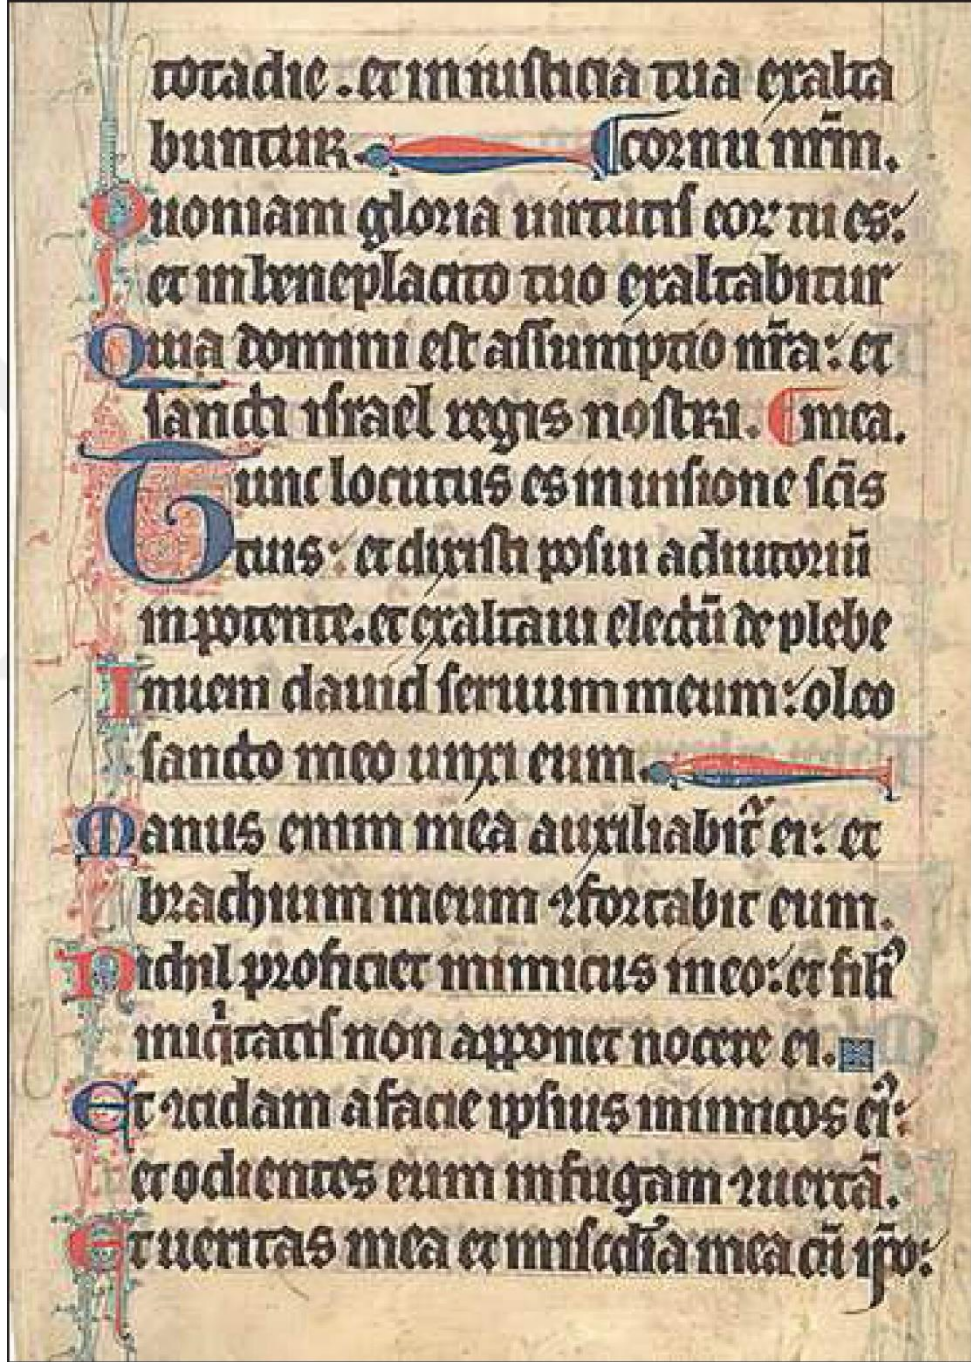 totadie . et in iusticia tua exalta
buntur. cornu nr̄m.
Quoniam gloria uirtutis eoꝝ tu es:
et in beneplacito tuo exaltabitur
Quia domini est assumptio nr̄a: et
sancti israel regis nostri. mea.
Tunc locutus es in uisione sc̄is
tuis: et dixisti posui adiutoriū
in potente. et exaltaui electū de plebe
Inueni dauid seruum meum: oleo
sancto meo unxi eum.
Manus enim mea auxiliabit᷑ ei: et
brachium meum ꝯfortabit eum.
Nichil proficiet inimicus in eo: et filiꝰ
iniqͥtatis non apponet nocere ei.
Et ꝯcidam a facie ipsius inimicos eiꝰ:
et odientes eum in fugam ꝯuertā.
Et ueritas mea et misc̄dia mea cū ip̄o: